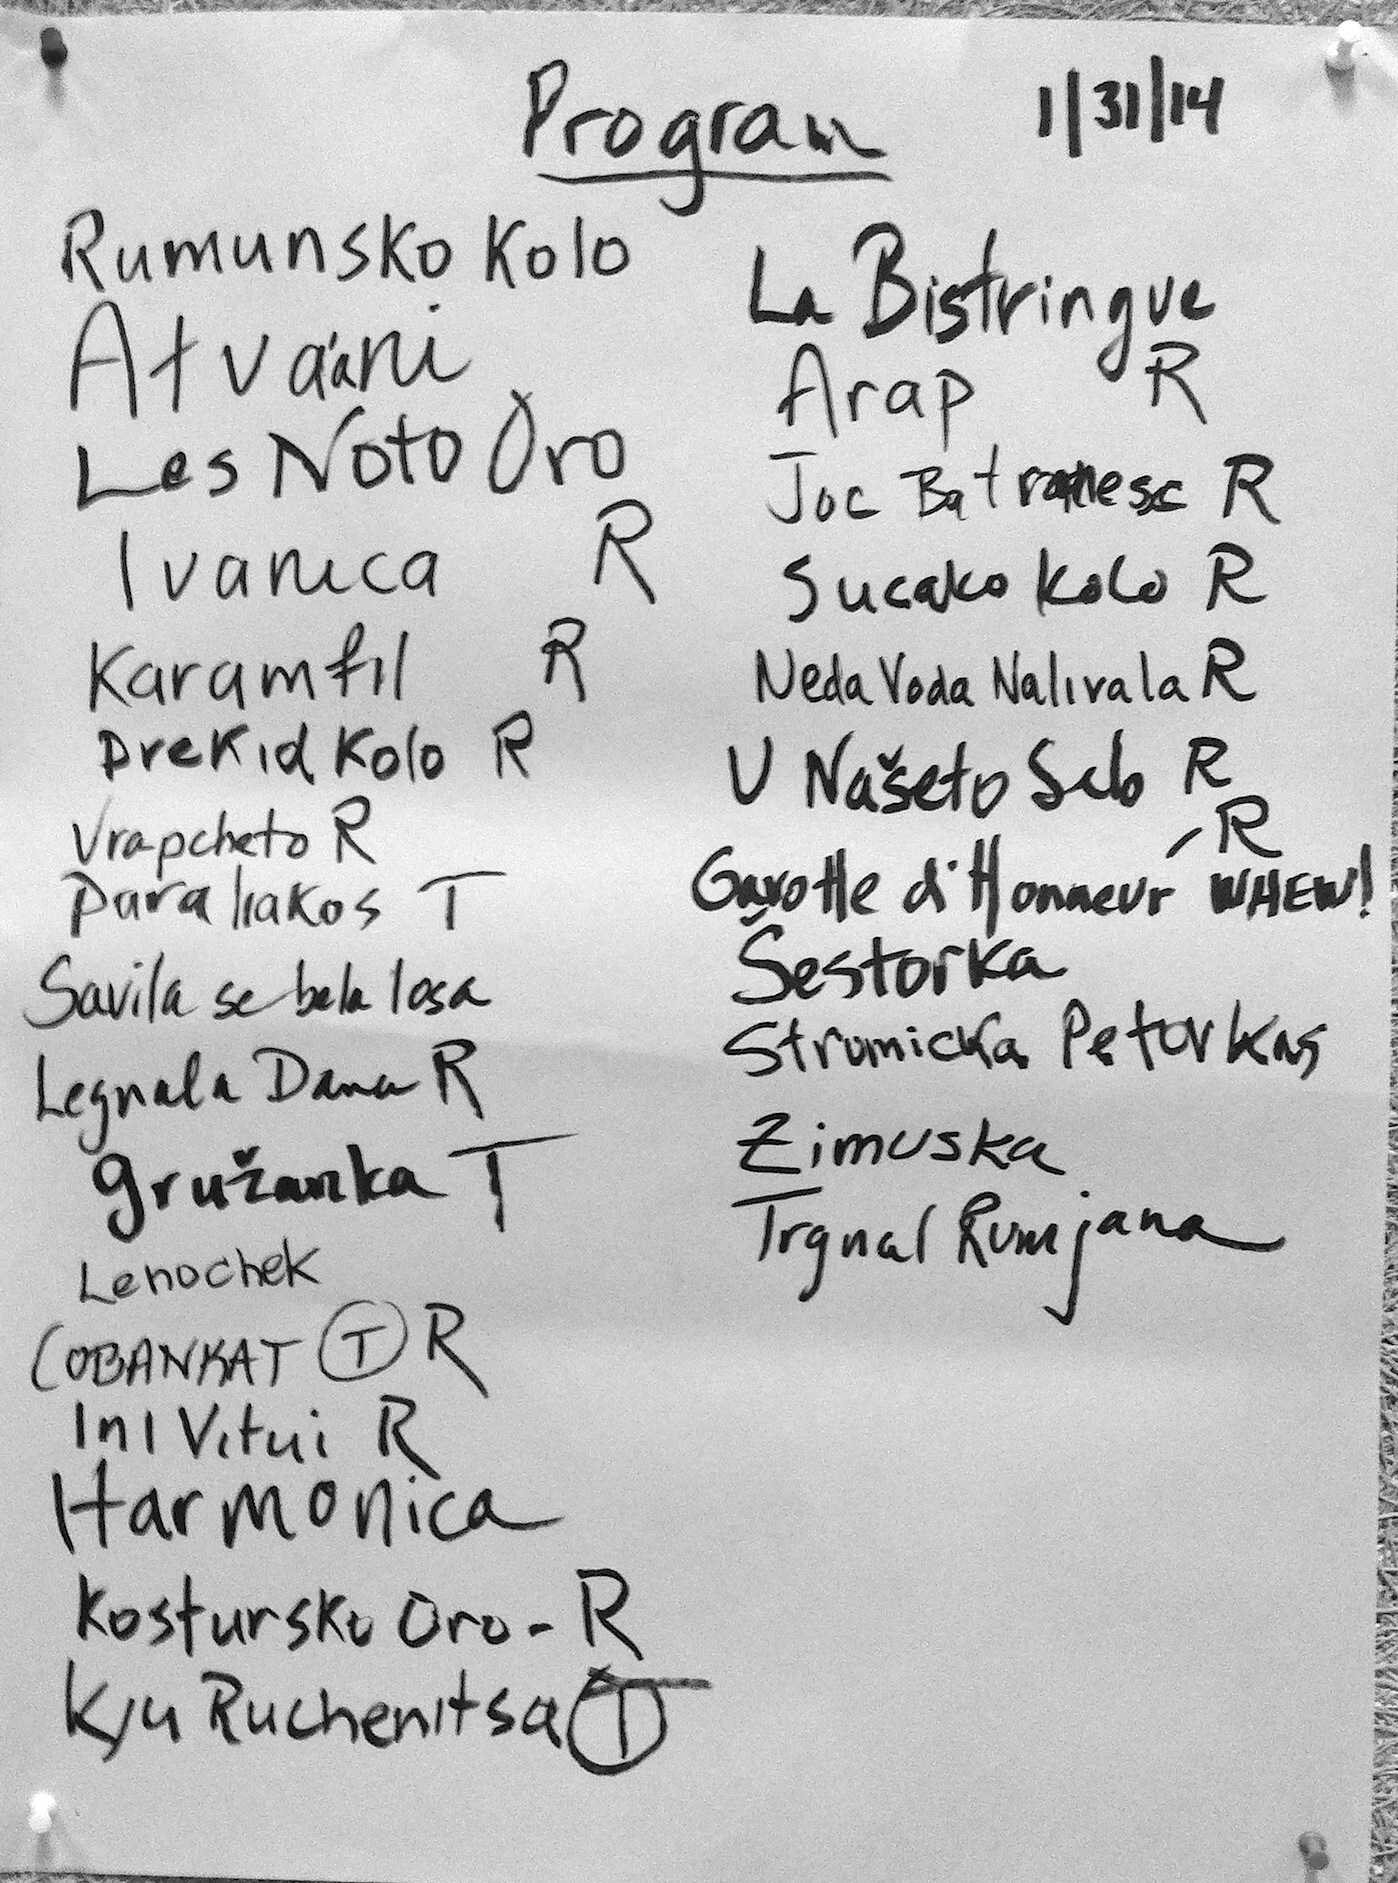 Program 1/31/14
Rumunsko Kolo
Atvaáni
Les Noto Oro
Ivanica R
Karamfil R
Prekid Kolo R
Vrapcheto R
Paraliakos T
Savila se bela losa
Legnala Dana R
gružanka T
Lenochek
COBANKAT T R
Ini Vitui R
Harmonica
Kostursko Oro - R
Kju Ruchenitsa T
La Bistringue
Arap R
Joc Batranesc R
Sucako Kolo R
Neda Voda Nalivala R
U Našeto Selo R
Gavotte d'Honneur - R WHEW!
Šestorka
Strumicka Petorkas
Zimuska
Trgnal Rumjana